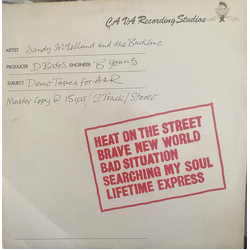 CAVA Recording Studios
ARTIST Sandy McLelland and the Backline
PRODUCER D Bates ENGINEER 'B' Young
SUBJECT Demo Tapes for A&R
Master Copy @ 15ips / 2 Track / Stereo
HEAT ON THE STREET
BRAVE NEW WORLD
BAD SITUATION
SEARCHING MY SOUL
LIFETIME EXPRESS